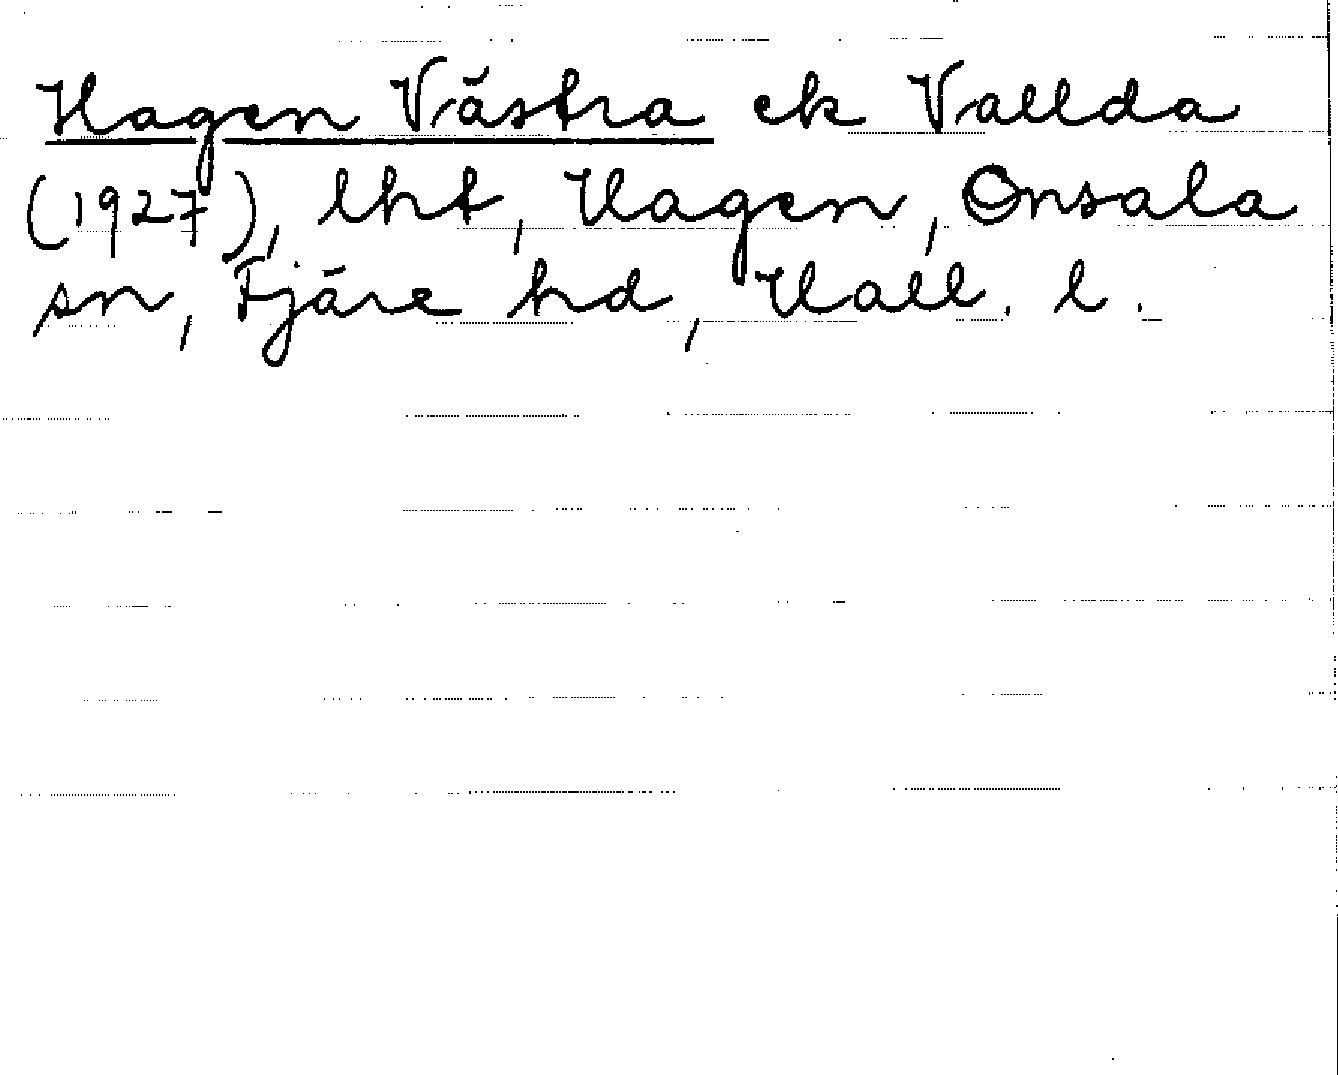 Hagen Västra ek Vallda
(1927), lht, Hagen, Onsala
sn, Fjäre hd, Hall. l.